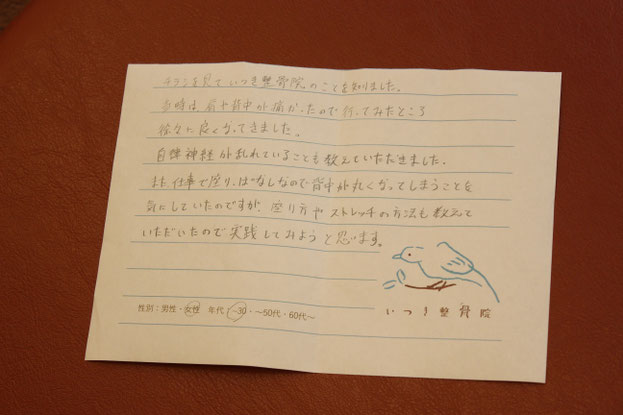 チラシを見て いつき整骨院のことを知りました。
当時は 肩や背中が痛かったので行ってみたところ
徐々に良くなってきました。
自律神経が乱れていることも教えていただきました。
また、仕事で座りっぱなしなので背中が丸くなってしまうことを
気にしていたのですが、座り方や ストレッチの方法も教えて
いただいたので実践してみようと思います。
性別:男性・女性 年代:~30・~50代・60代~
いつき整骨院